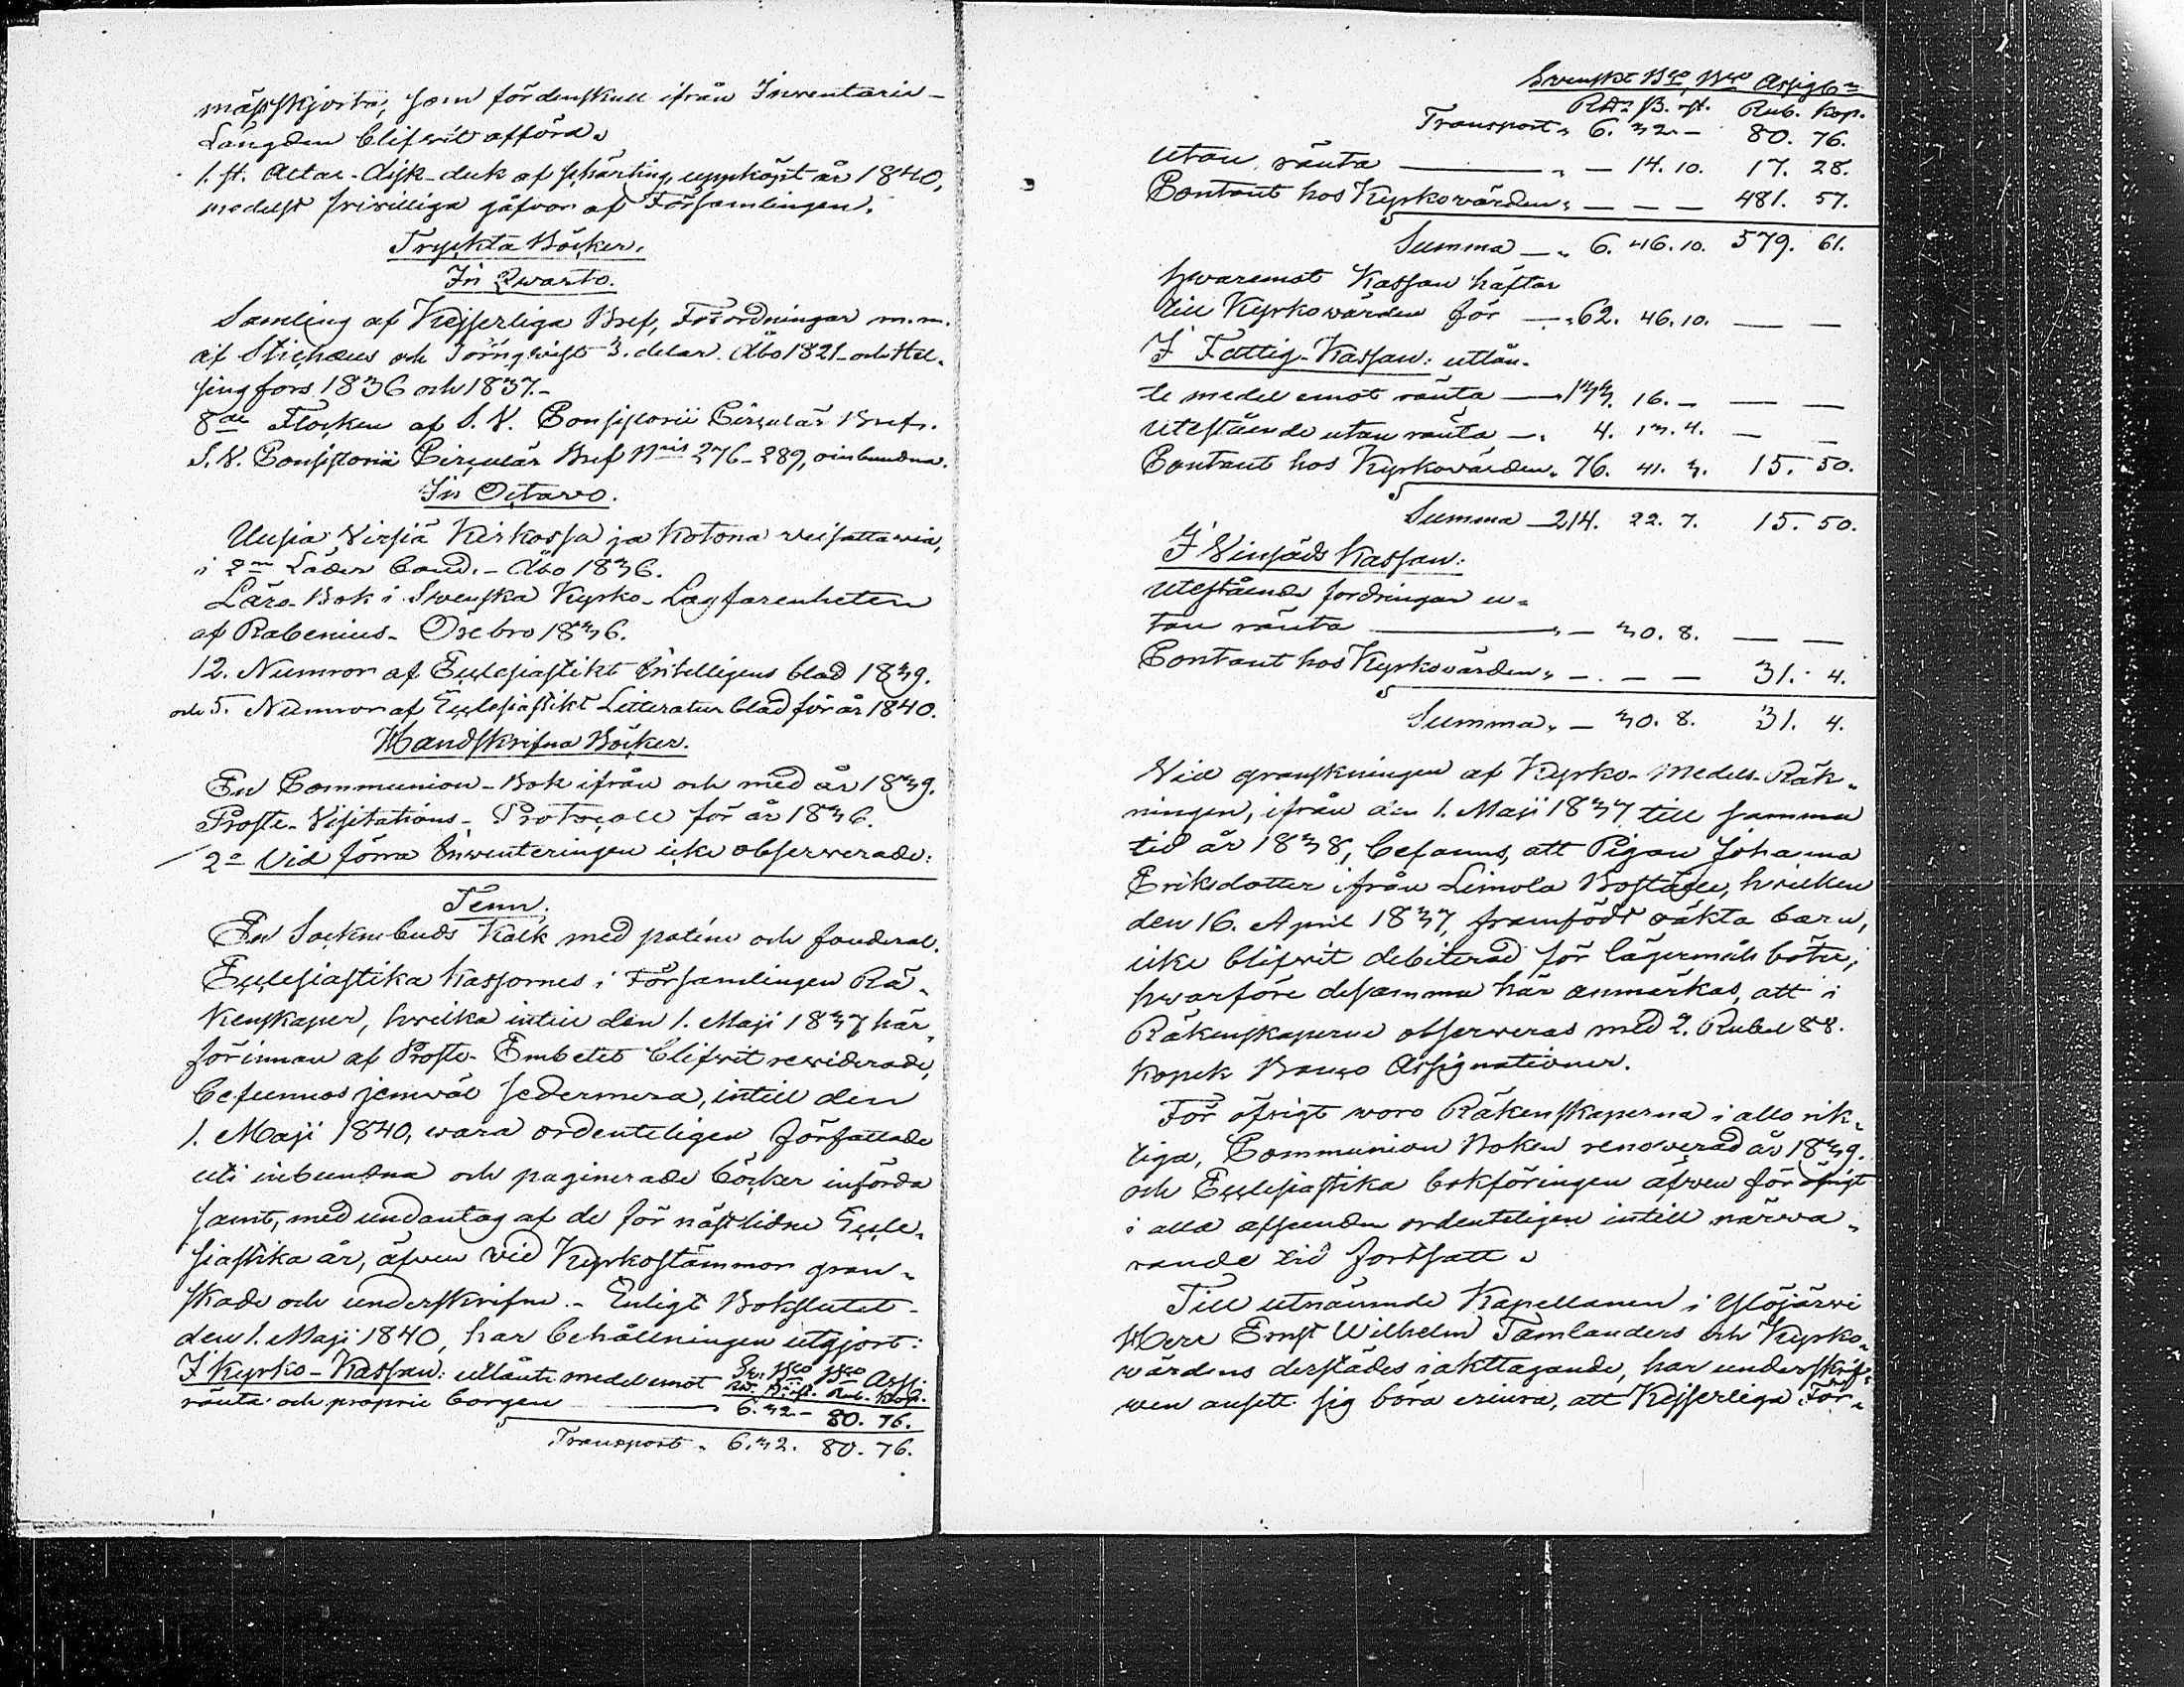 mässkjorta, som fördenskull ifrån Inventarie-
Längden blifvit afförd.
1. st. Altar-disk-duk af schärting, uppköpt år 1840,
medelst friwilliga gåfvor af Församlingen.
Tryckta Böcker.
In Qwarto.
Samling af Kejserliga Bref, Förordningar m.m.
af Stichæus och Törnqwist 3. delar. Åbo 1821 och Hel-
singfors 1836 och 1837.-
8de Flocken af S. V. Consistorii Circulär Bref.
S. V. Consistorii Circulär Bref Nris 276-289, oinbundna.
In Octavo.
Uusia Virsiä Kirkossa ja Kotona veisattawia,
i 2ne Läder band. - Åbo 1836.
Läro-Bok i Swenska Kyrko-Lagfarenheten
af Rabenius - Örebro 1836.
12. Numror af Ecclesiastikt Intelligens blad 1839.
och 5. Numror af Ecclesiastikt Litteratur blad för år 1840.
Handskrifna Böcker.
En Communion-Bok ifrån och med år 1839.
Proste-Visitations-Protocoll för år 1836.
2o Vid förra Inventeringen icke observerade:
Tenn.
En Sockenbuds Kalk med patén och fouderal.
Ecclesiastika Kassornes i Församlingen Rä-
kenskaper, hwilka intill den 1. Maji 1837 här
förinnan af Proste-Embetet blifvit reviderade,
befunnos jemwäl sedermera, intill den
1. Maji 1840, wara ordenteligen författade
uti inbundna och paginerade böcker införda
samt, med undantag af de för nästlidne Eccle-
siastika år, äfven vid Kyrkostämmor gran-
skade och underskrifne. - Enligt Bokslutet
den 1. Maji 1840, har behållningen utgjort:
I Kyrko-Kassan: utlånte medel emot Sv. Bco Bco Assi.
ränta och proprie borgen 6. 32. - 80. 76.
Transport. 6. 32. 80. 76.
Svenskt Bco, Bco Assign.
RDr ß. rst. Rub. Kop.
Transport. 6. 32. - 80. 76.
utan ränta - 14. 10. 17. 28.
Contant hos Kyrkovärden. - - - 481. 57.
Summa - 6. 46. 10. 579. 61.
hwaremot Kassan häftar
till Kyrkovärden för - 62. 46. 10. - -
I Fattig-Kassan: utlån-
te medel emot ränta - 133. 16. - - -
Utestående utan ränta - 4. 13. 4. - -
Contant hos Kyrkovärden. 76. 41. 3. 15. 50.
Summa - 214. 22. 7. 15. 50.
I Vinsäds Kassan:
Utestående fordringar u-
tan ränta - 30. 8. - -
Contant hos Kyrkovärden. - - - 31. 4.
Summa. - 30. 8. 31. 4.
Vid granskningen af Kyrko-Medels-Räk-
ningen, ifrån den 1. Maji 1837 till samma
tid år 1838, befanns, att Pigan Johanna
Eriksdotter ifrån Limola Boställe, hvilken
den 16. April 1837, framfödt oäkta barn,
icke blifvit debiterad för lägersmåls böter;
hwarföre desamma här anmärkas, att i
Räkenskaperne observeras med 2. Rubel 88.
Kopek Banco Assignationer.
För öfrigt woro Räkenskaperna i allo rik-
tiga, Communion Boken renoverad år 1839.
och Ecclesiastika bokföringen äfven för öfrigt
i alla afseenden ordenteligen intill närva-
rande tid fortsatt.
Till utnämnde Kapellanen i Ylöjärvi
Herr Ernst Wilhelm Tamlanders och Kyrko-
wärdens derstädes iakttagande, har underskrif-
ven ansett sig böra erinra, att Kejserliga För-